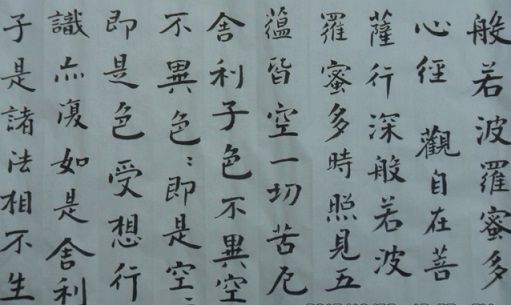 般若波羅蜜多
心經 觀自在菩
薩行深般若波
羅蜜多時照見五
蘊皆空一切苦厄
舍利子色不異空
不異色〻即是空〻
即是色受想行
識亦復如是舍利
子是諸法相不生